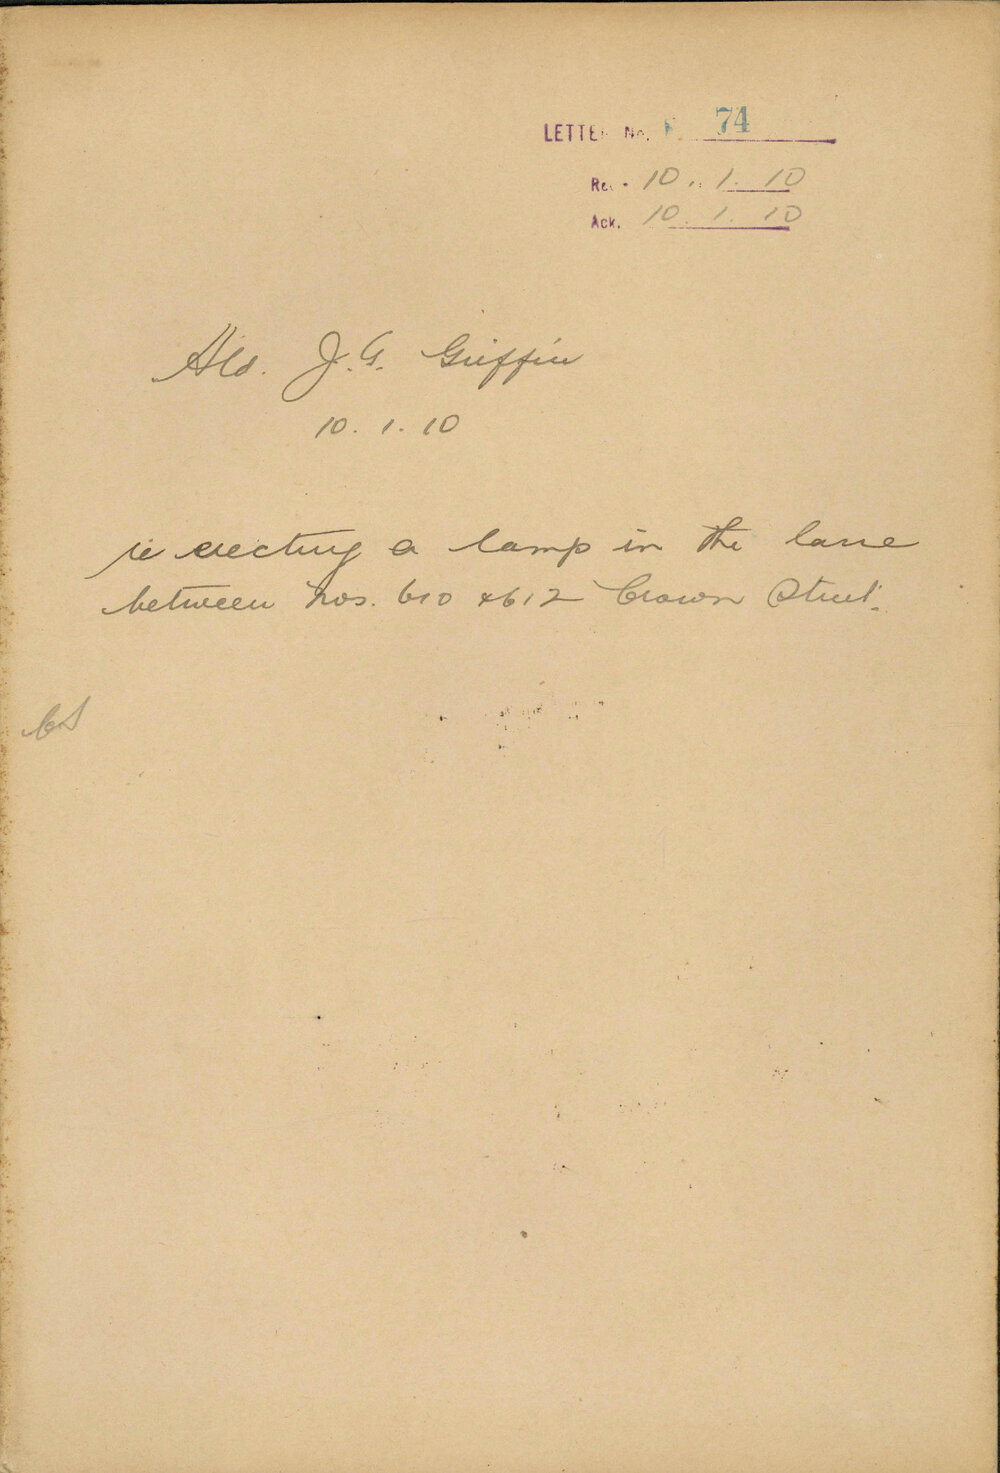 LETTER No. 74
Rec. 10. 1. 10
Ack. 10. 1. 10
Ald. J. G. Griffin
10. 1. 10
re erecting a lamp in the lane
between Nos. 610 & 612 Crown Street.